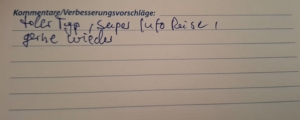 Kommentare/Verbesserungsvorschläge:
toller Tipp, super Info Reise,
gerne wieder